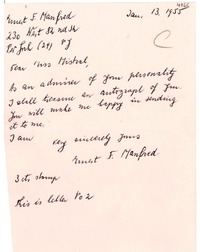 4966
Ernest F. Manfred
Jan. 13, 1955
230 West 52nd St
New York (29) NY
Dear Miss Mistral,
As an admirer of your personality
I shall treasure an autograph of you.
You will make me happy in sending
it to me.
I am very sincerely yours
Ernest F. Manfred
3 cts stamp
This is letter No 2